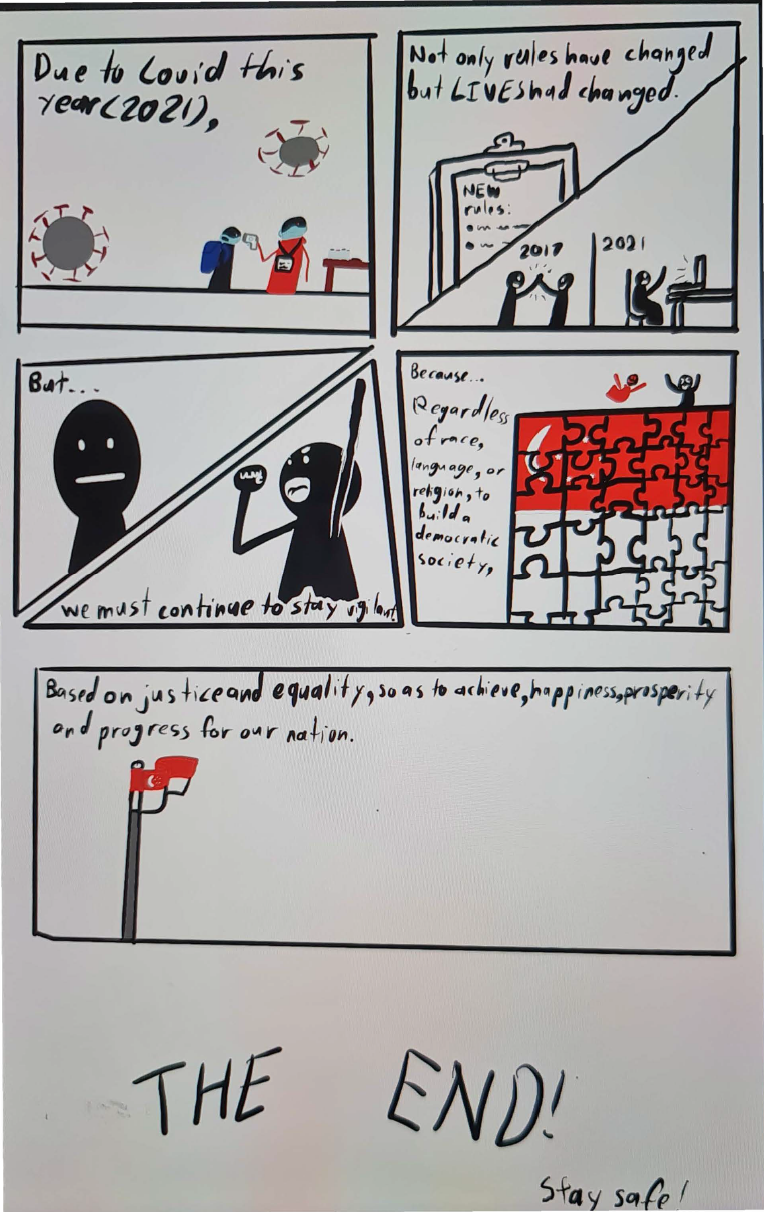 Due to Covid this
year(2021),
Not only rules have changed
but LIVES had changed.
NEW
rules:
2017
2021
But...
we must continue to stay vigilant
Because...
Regardless
of race,
language, or
religion, to
build a
democratic
society,
Based on justice and equality, so as to achieve, happiness, prosperity
and progress for our nation.
THE END!
Stay safe!